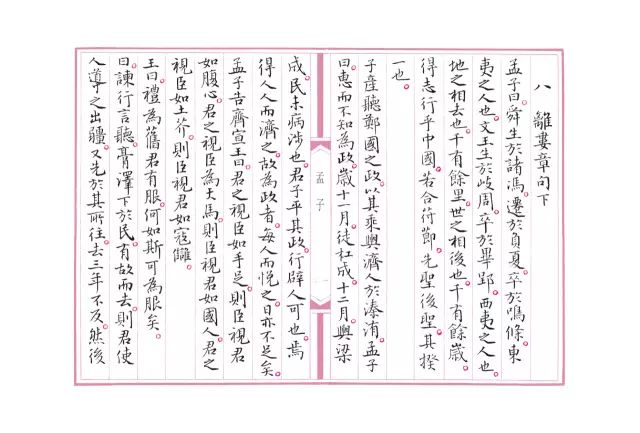 八 離婁章句下
孟子曰。舜生於諸馮。遷於負夏。卒於鳴條。東
夷之人也。文王生於岐周。卒於畢郢。西夷之人也。
地之相去也。千有餘里。世之相後也。千有餘歲。
得志行乎中國。若合符節。先聖後聖。其揆
一也。
子產聽鄭國之政。以其乘輿濟人於溱洧。孟子
曰。惠而不知為政。歲十一月。徒杠成。十二月。輿梁
孟子
成。民未病涉也。君子平其政。行辟人可也。焉
得人人而濟之。故為政者。每人而悅之。日亦不足矣。
孟子告齊宣王曰。君之視臣如手足。則臣視君
如腹心。君之視臣為犬馬。則臣視君如國人。君之
視臣如土芥。則臣視君如寇讎。
王曰。禮為舊君有服。何如斯可為服矣。
曰。諫行言聽。膏澤下於民。有故而去。則君使
人導之出疆。又先於其所往。去三年不反。然後